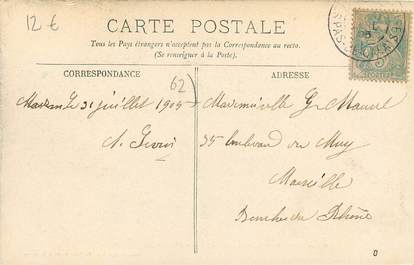 12 €
CARTE POSTALE
Tous les Pays étrangers n'acceptent pas la Correspondance au recto.
(Se renseigner à la Poste).
CORRESPONDANCE
62)
31 juillet 1904
ADRESSE
Mademoiselle G. Maurel
35 boulevard du Muy
Marseille
Bouches du Rhône
PAS-
CALAIS
0